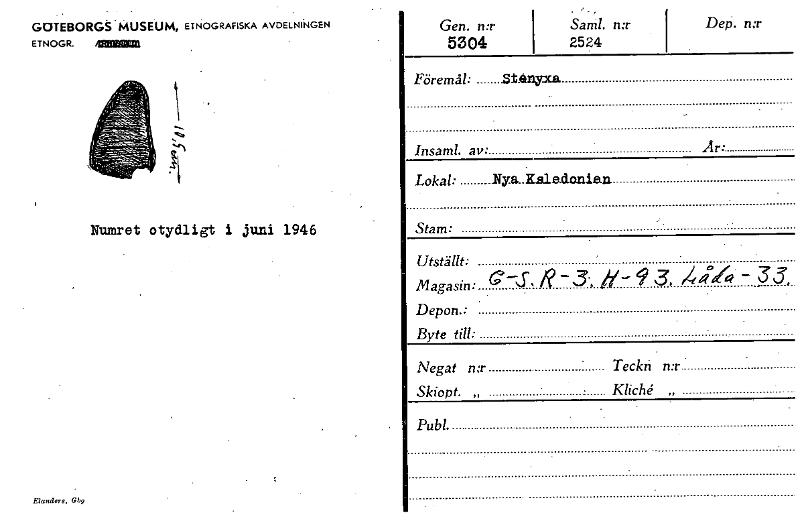 GÖTEBORGS MUSEUM, ETNOGRAFISKA AVDELNINGEN
ETNOGR.
10,5 cm.
Numret otydligt i juni 1946
Elanders, Gbg
Gen. n:r Saml. n:r Dep. n:r
5304 2524
Föremål: Stenyxa
Insaml. av: År:
Lokal: Nya Kaledonien
Stam:
Utställt:
Magasin: G-S. R-3. H-93. Låda-33.
Depon.:
Byte till:
Negat n:r Teckn n:r
Skiopt. „ Kliché „
Publ.